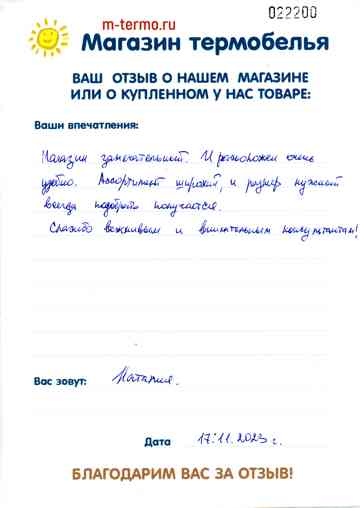 022200
m-termo.ru
Магазин термобелья
ВАШ ОТЗЫВ О НАШЕМ МАГАЗИНЕ
ИЛИ О КУПЛЕННОМ У НАС ТОВАРЕ:
Ваши впечатления:
Магазин замечательный. И расположен очень
удобно. Ассортимент широкий, и размер нужный
всегда подобрать получается.
Спасибо вежливым и внимательным консультантам!
Вас зовут: Наталия.
Дата 17.11.2023 г.
БЛАГОДАРИМ ВАС ЗА ОТЗЫВ!